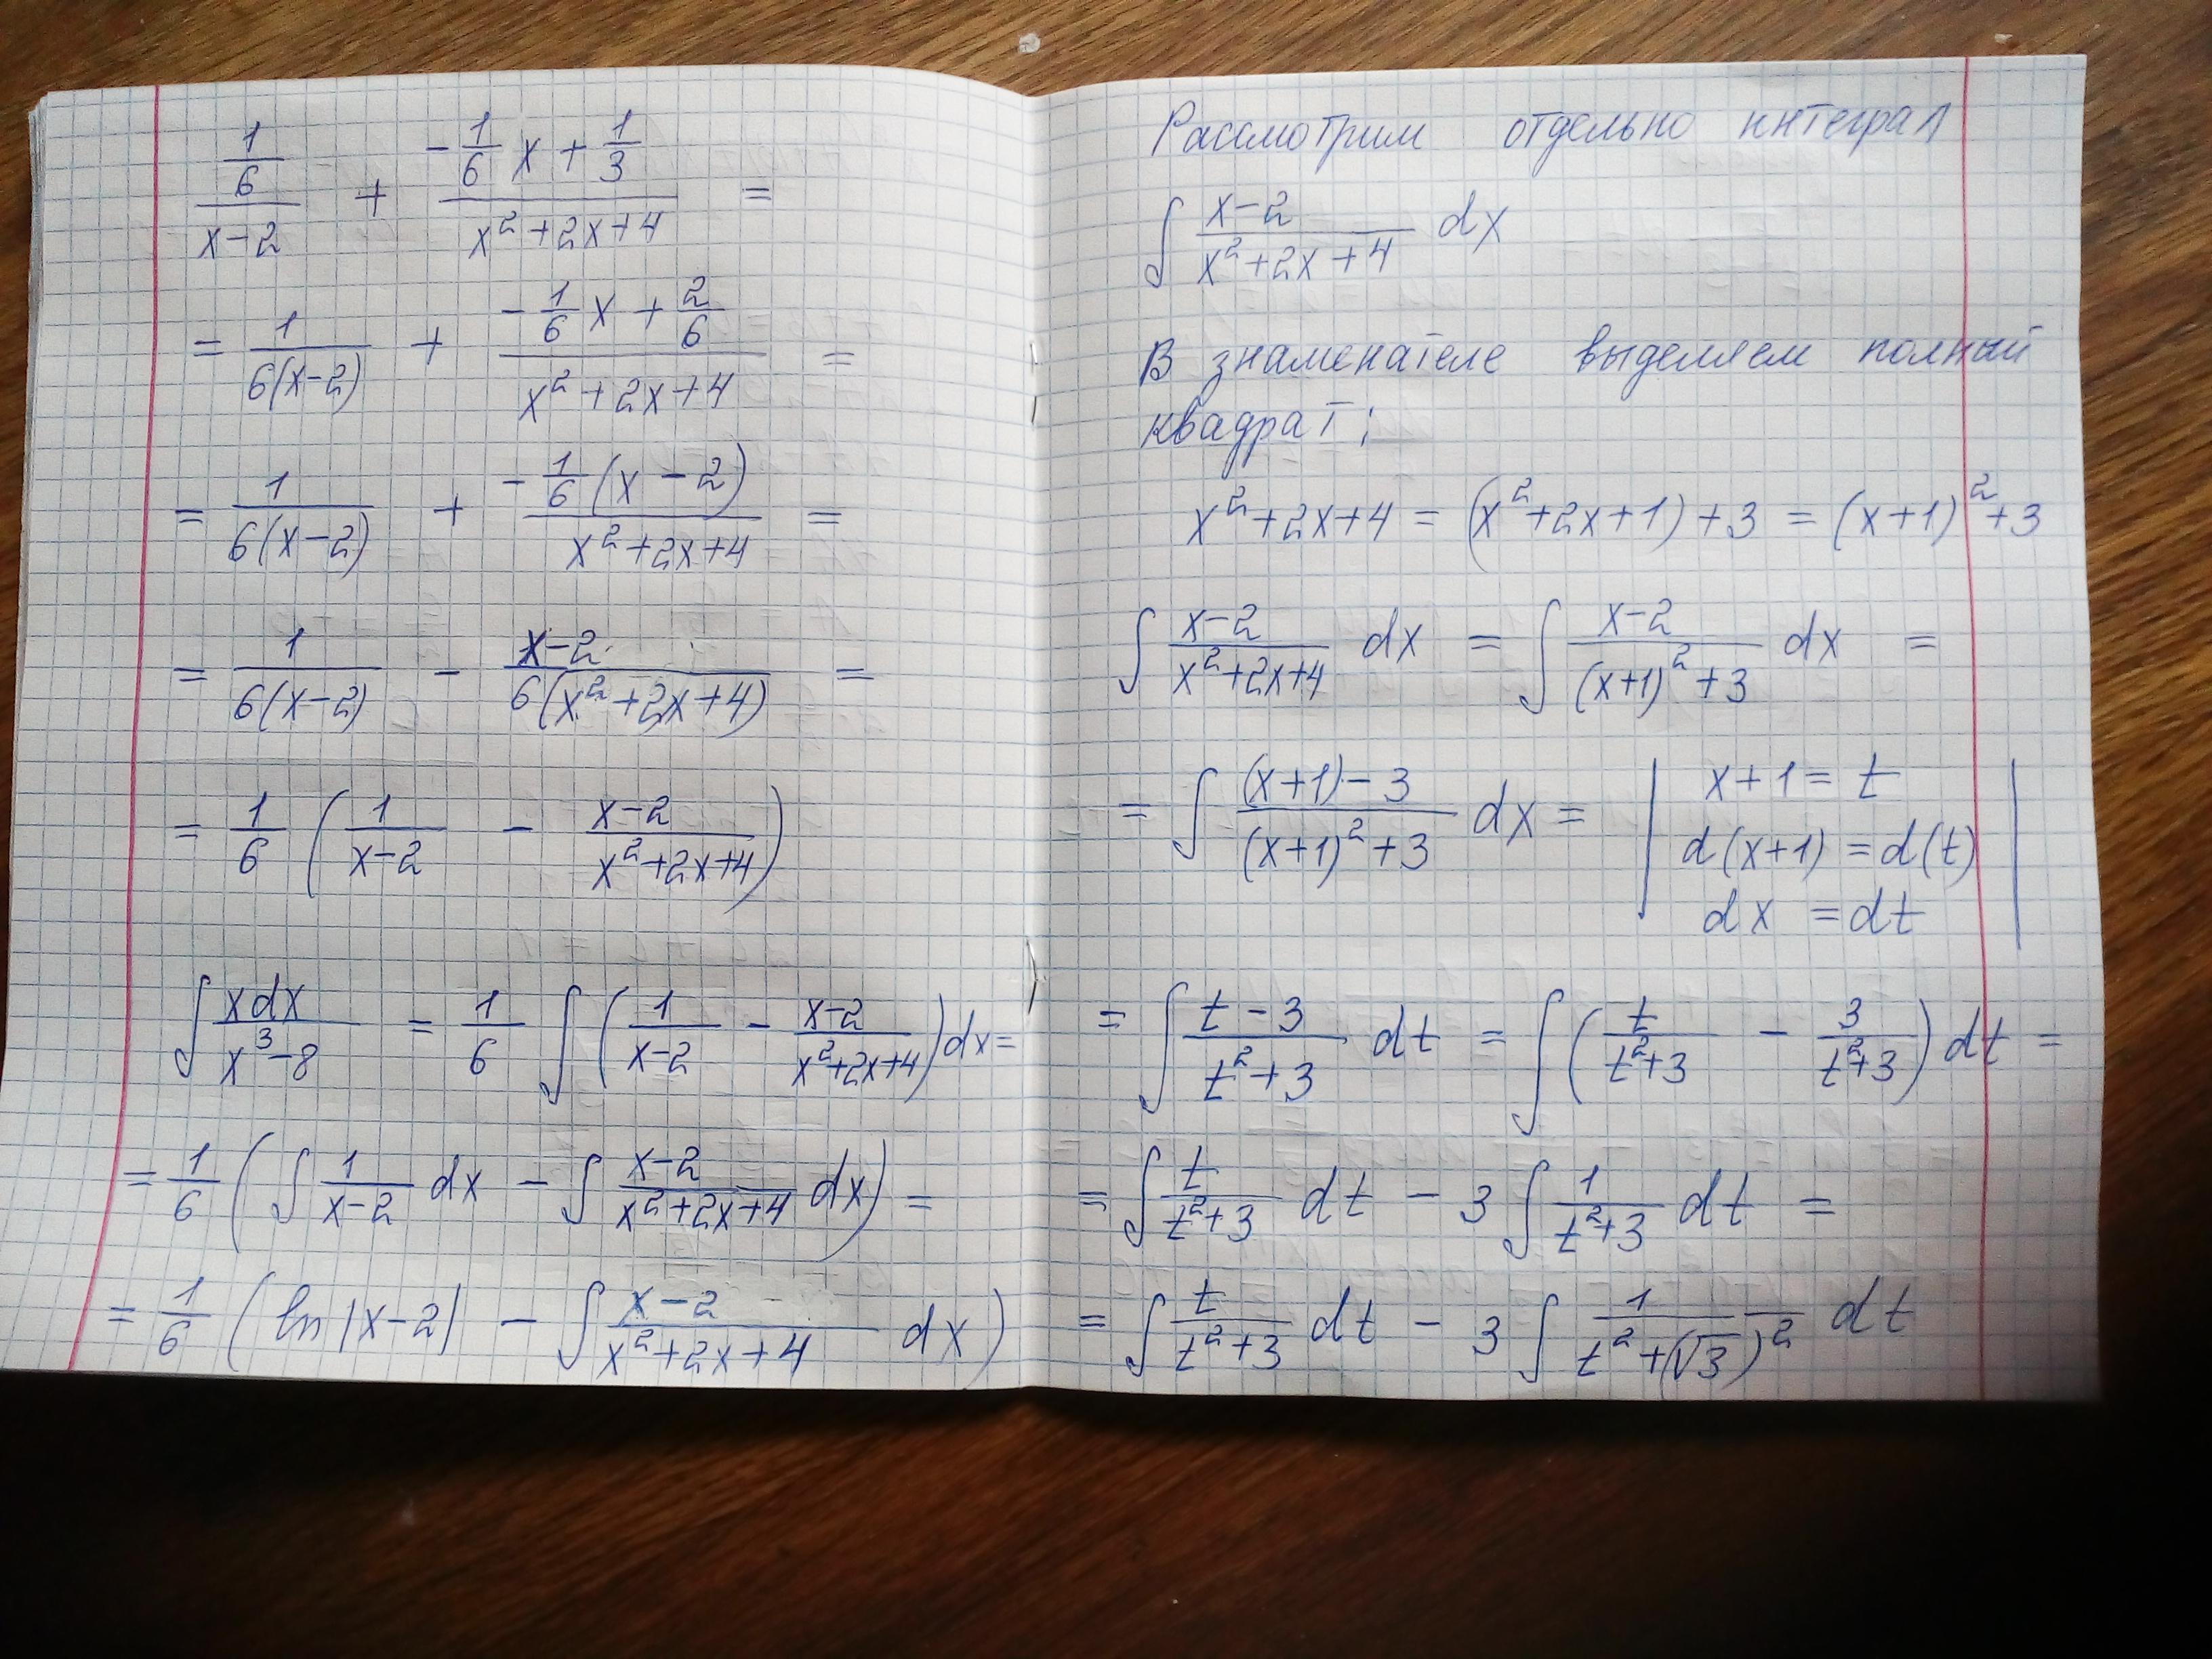 (1/6)/(x-2) + (-1/6 x + 1/3)/(x²+2x+4) =
= 1/(6(x-2)) + (-1/6 x + 2/6)/(x²+2x+4) =
= 1/(6(x-2)) + (-1/6 (x-2))/(x²+2x+4) =
= 1/(6(x-2)) - (x-2)/(6(x²+2x+4)) =
= 1/6 (1/(x-2) - (x-2)/(x²+2x+4))
∫ xdx/(x³-8) = 1/6 ∫ (1/(x-2) - (x-2)/(x²+2x+4)) dx =
= 1/6 (∫ 1/(x-2) dx - ∫ (x-2)/(x²+2x+4) dx) =
= 1/6 (ln|x-2| - ∫ (x-2)/(x²+2x+4) dx)
Рассмотрим отдельно интеграл
∫ (x-2)/(x²+2x+4) dx
В знаменателе выделяем полный
квадрат:
x²+2x+4 = (x²+2x+1)+3 = (x+1)²+3
∫ (x-2)/(x²+2x+4) dx = ∫ (x-2)/((x+1)²+3) dx =
= ∫ ((x+1)-3)/((x+1)²+3) dx = | x+1 = t
d(x+1) = d(t)
dx = dt |
= ∫ (t-3)/(t²+3) dt = ∫ (t/(t²+3) - 3/(t²+3)) dt =
= ∫ t/(t²+3) dt - 3 ∫ 1/(t²+3) dt =
= ∫ t/(t²+3) dt - 3 ∫ 1/(t²+(√3)²) dt